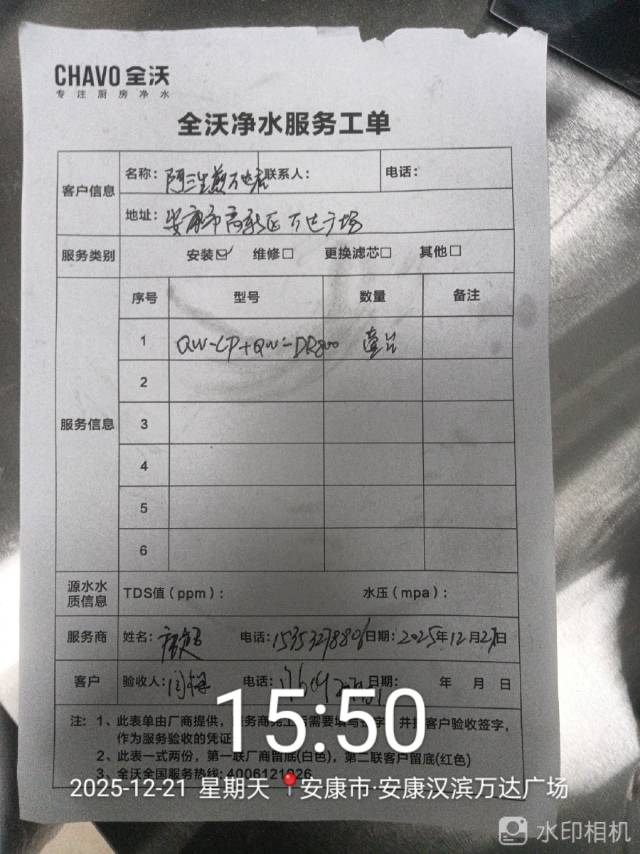 CHAVO 全沃
专注厨房净水
全沃净水服务工单
客户信息 名称: 阿三生煎万达店 联系人: 电话:
地址: 安康市高新区万达广场
服务类别 安装☑ 维修□ 更换滤芯□ 其他□
服务信息 序号 型号 数量 备注
1 QW-CP+QW-DR800 壹台
2
3
4
5
6
源水水质信息 TDS值(ppm): 水压(mpa):
服务商 姓名: 电话: 日期: 2025年12月21日
客户 验收人: 电话: 日期: 年 月 日
注: 1、此表单由厂商提供,服务商完工后需要填写 并 客户验收签字,
作为服务验收的凭证
2、此表一式两份,第一联厂商留底(白色),第二联客户留底(红色)
3、全沃全国服务热线: 4006121026
15:50
2025-12-21 星期天 安康市·安康汉滨万达广场
水印相机